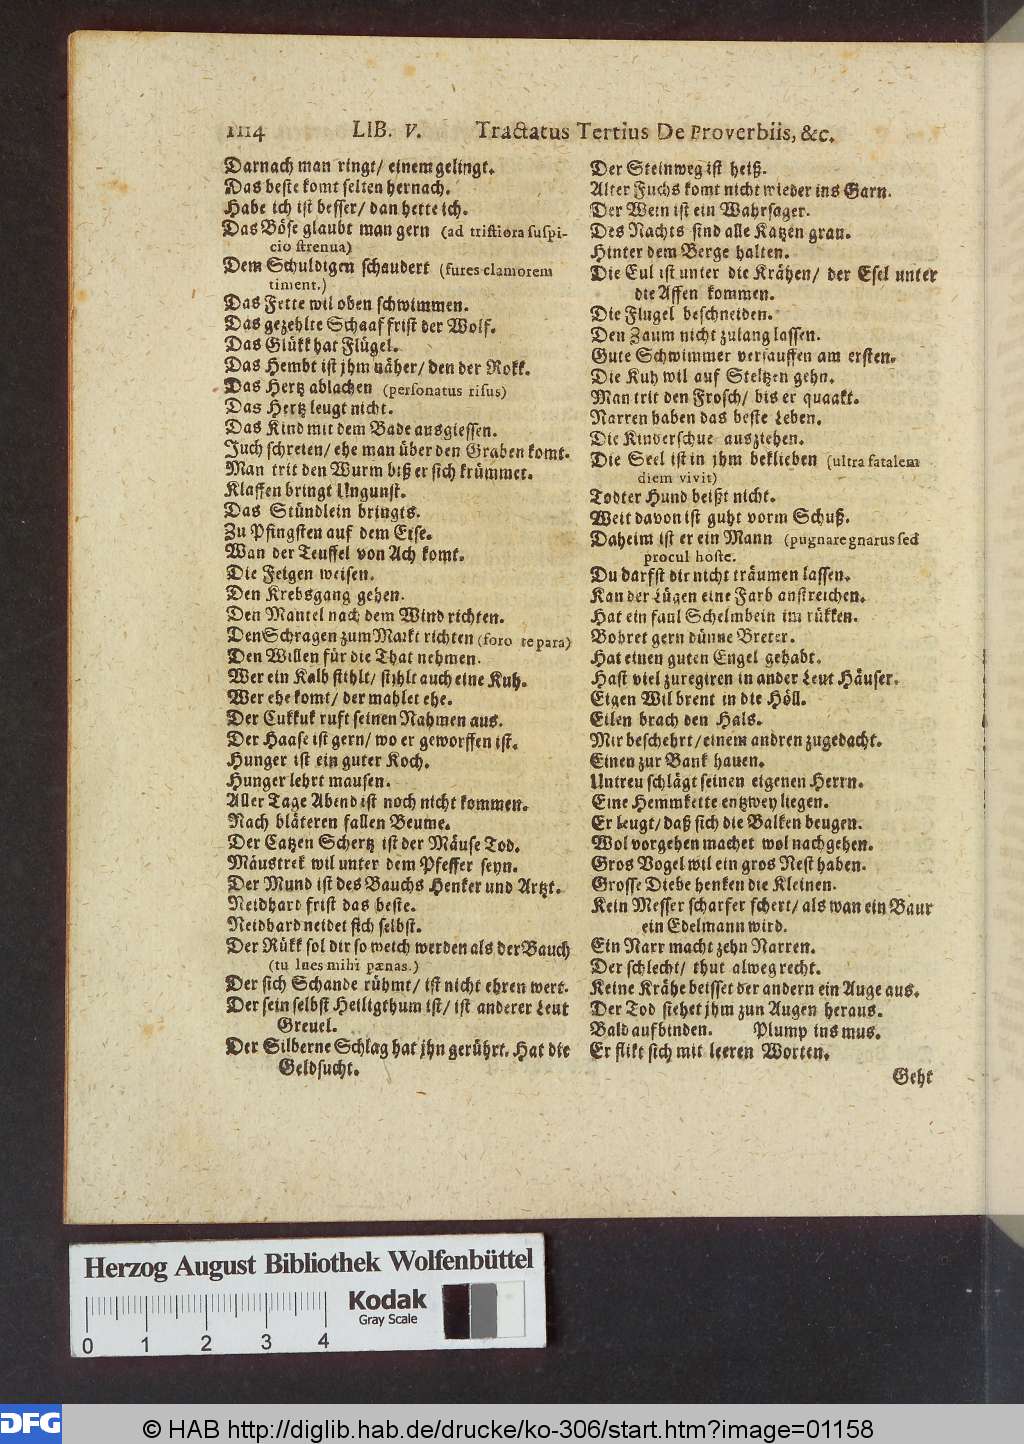 1114 LIB. V. Tractatus Tertius De Proverbiis, &c.
Darnach man ringt/ einem gelingt.
Das beste komt selten hernach.
Habe ich ist besser/ dan hette ich.
Das Böse glaubt man gern (ad tristiora suspi-
cio strenua)
Dem Schuldigen schaudert (fures clamorem
timent.)
Das Fette wil oben schwimmen.
Das gezehlte Schaaf frist der Wolf.
Das Glükk hat Flügel.
Das Hembt ist jhm näher/ den der Rokk.
Das Hertz ablachen (personatus risus)
Das Hertz leugt nicht.
Das Kind mit dem Bade ausgiessen.
Juch schreien/ ehe man über den Graben komt.
Man trit den Wurm biß er sich krümmet.
Klaffen bringt Ungunst.
Das Stündlein bringts.
Zu Pfingsten auf dem Eise.
Wan der Teuffel von Ach komt.
Die Feigen weisen.
Den Krebsgang gehen.
Den Mantel nach dem Wind richten.
Den Schragen zum Markt richten (foro te para)
Den Willen für die That nehmen.
Wer ein Kalb stihlt/ stihlt auch eine Kuh.
Wer ehe komt/ der mahlet ehe.
Der Cukkuk ruft seinen Nahmen aus.
Der Haase ist gern/ wo er geworffen ist.
Hunger ist ein guter Koch.
Hunger lehrt mausen.
Aller Tage Abend ist noch nicht kommen.
Nach bläteren fallen Beume.
Der Catzen Schertz ist der Mäuse Tod.
Mäustrek wil unter dem Pfeffer seyn.
Der Mund ist des Bauchs Henker und Artzt.
Neidhard frist das beste.
Neidhard neidet sich selbst.
Der Rükk sol dir so weich werden als der Bauch
(tu lues mihi pœnas.)
Der sich Schande rühmt/ ist nicht ehren wert.
Der sein selbst Heiligthum ist/ ist anderer Leut
Greuel.
Der Silberne Schlag hat jhn gerührt. Hat die
Geldsucht.
Der Steinweg ist heiß.
Alter Fuchs komt nicht wieder ins Garn.
Der Wein ist ein Wahrsager.
Des Nachts sind alle Katzen grau.
Hinter dem Berge halten.
Die Eul ist unter die Krähen/ der Esel unter
die Affen kommen.
Die Flugel beschneiden.
Den Zaum nicht zulang lassen.
Gute Schwimmer versauffen am ersten.
Die Kuh wil auf Steltzen gehn.
Man trit den Frosch/ bis er quaakt.
Narren haben das beste Leben.
Die Kinderschue ausziehen.
Die Seel ist in jhm beklieben (ultra fatalem
diem vivit)
Todter Hund beißt nicht.
Weit davon ist guht vorm Schuß.
Daheim ist er ein Mann (pugnare gnarus sed
procul hoste.
Du darfst dir nicht träumen lassen.
Kan der Lügen eine Farb anstreichen.
Hat ein faul Schelmbein im rükken.
Bohret gern dünne Breter.
Hat einen guten Engel gehabt.
Hast viel zuregiren in ander Leut Häuser.
Eigen Wil brent in die Höll.
Eilen brach den Hals.
Mir beschehrt/ einem andren zugedacht.
Einen zur Bank hauen.
Untreu schlägt seinen eigenen Herrn.
Eine Hemmkette entzwey liegen.
Er leugt/ daß sich die Balken beugen.
Wol vorgehen machet wol nachgehen.
Gros Vogel wil ein gros Nest haben.
Grosse Diebe henken die Kleinen.
Kein Messer scharfer schert/ als wan ein Baur
ein Edelmann wird.
Ein Narr macht zehn Narren.
Der schlecht/ thut alweg recht.
Keine Krähe beisset der andern ein Auge aus.
Der Tod siehet jhm zun Augen heraus.
Bald aufbinden. Plump ins mus.
Er flikt sich mit leeren Worten.
Geht
Herzog August Bibliothek Wolfenbüttel
Kodak
Gray Scale
0 1 2 3 4
DFG © HAB http://diglib.hab.de/drucke/ko-306/start.htm?image=01158